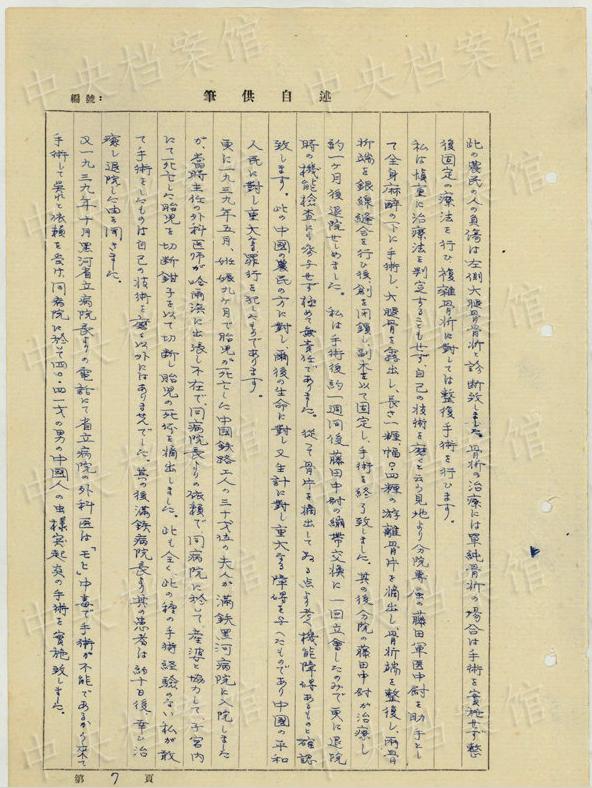 編號：
述自供筆
此の農民の人の負傷は左側大腿骨骨折と診断致しました。骨折の治療には單純骨折の場合は手術を實施せず整
後固定の療法を行ひ複雜骨折に對しては整復手術を行ひます。
私は慎重に治療法を判定することもせず自己の技術を磨くと云う見地より分院專屬の藤田軍医中尉を助手とし
て全身麻醉の下に手術し、大腿骨を露出し、長さ一糎、幅〇.四糎の游離骨片を摘出し、骨折端を整復し、両骨
折端を銀線縫合を行ひ後創を閉鎖し副木を以て固定し、手術を終了致しました。其の後分院の藤田中尉が治療し
約一ヶ月後退院せしめました。私は手術後約一週间後藤田中尉の繃帯交換に一回立會したのみで更に退院
時の機能檢査にも参与せず極めて無責任でありました。從って骨片を摘出してゐる点より考へ機能障碍あるものと確認
致します。此の中國の農民の方に對し、爾後の生命に對し又生計に對し重大なる障碍を与へたものであり中國の平和
人民に對し重大なる罪行を犯したものであります。
更に一九三九年五月、妊娠九ヶ月で胎児が死亡した中國鉄路工人の三十才位の夫人が滿鉄黒河病院に入院しました
が、當時主任の外科医师が哈爾濱に出張し不在で、同病院長よりの依頼で同病院に於て産婆と協力して子宮内
にて死亡した胎児を切断鉗子を以て切断し胎児の死体を摘出しました。此も全く此の種の手術経験のない私が敢
て手術をしたものは自己の技術を磨く以外にはありませんでした。其の後滿鉄病院長より其の患者は約十日後、幸ひ治
癒し退院した由を聞きました。
又一九三九年十月黒河省立病院長よりの電話にて省立病院の外科医は「モヒ」中毒で手術が不能であるから來て
手術して呉れと依頼を受け、同病院に於いて四〇.四一才の男の中國人の虫様突起炎の手術を實施致しました。
第 7 頁
中央档案馆